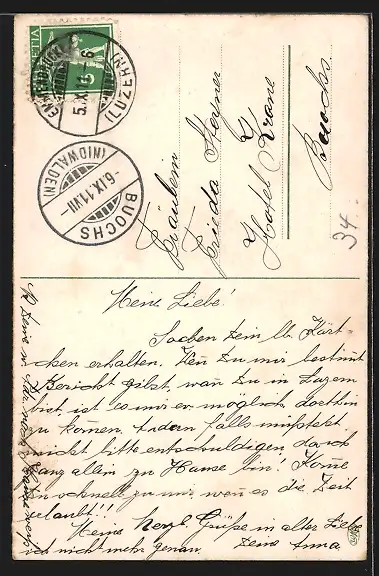 HELVETIA
5
5.IX.11. 6
(LUZERN)
BUOCHS
-6.IX.11.VII-
(NIDWALDEN)
Fräulein
Frieda
Hotel Krone
Buochs
34.
Meine Liebe!
Soeben Dein lb. Kärt-
chen erhalten. Wen Du mir bestimt
Bericht gibst, wan Du in Luzern
bist, ist es mir ev. möglich, dorthin
zu komen. Andern falls müsstest
mich bitte entschuldigen, da ich
ganz allein zu Hause bin. Kome
dan schnell zu mir, wen es die Zeit
erlaubt!!
Meine herzl. Grüße in alter Liebe
Deine Anna
ich nicht mehr genau.